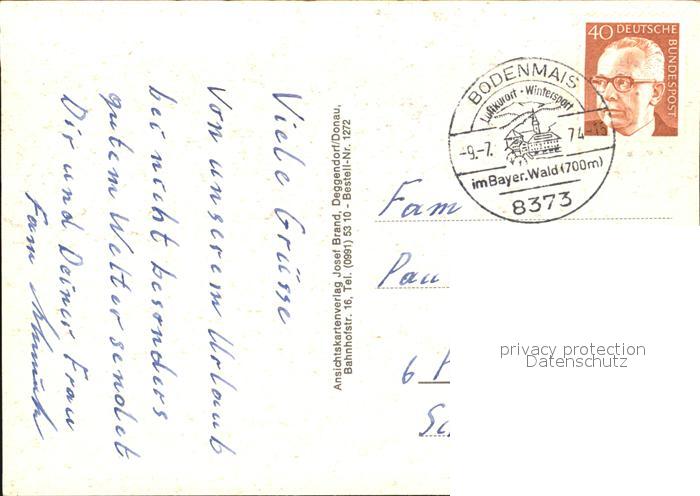 Viele Grüsse
von unserem Urlaub
bei nicht besonders
gutem Wetter sendet
Dir und Deiner Frau
Fam
Ansichtskartenverlag Josef Brand, Deggendorf/Donau,
Bahnhofstr. 16, Tel. (0991) 53 10 - Bestell-Nr. 1272
40 DEUTSCHE
BUNDESPOST
BODENMAIS
Luftkurort · Wintersport
-9.-7. 74-
im Bayer. Wald (700m)
8373
Fam
Pau
6
privacy protection
Datenschutz